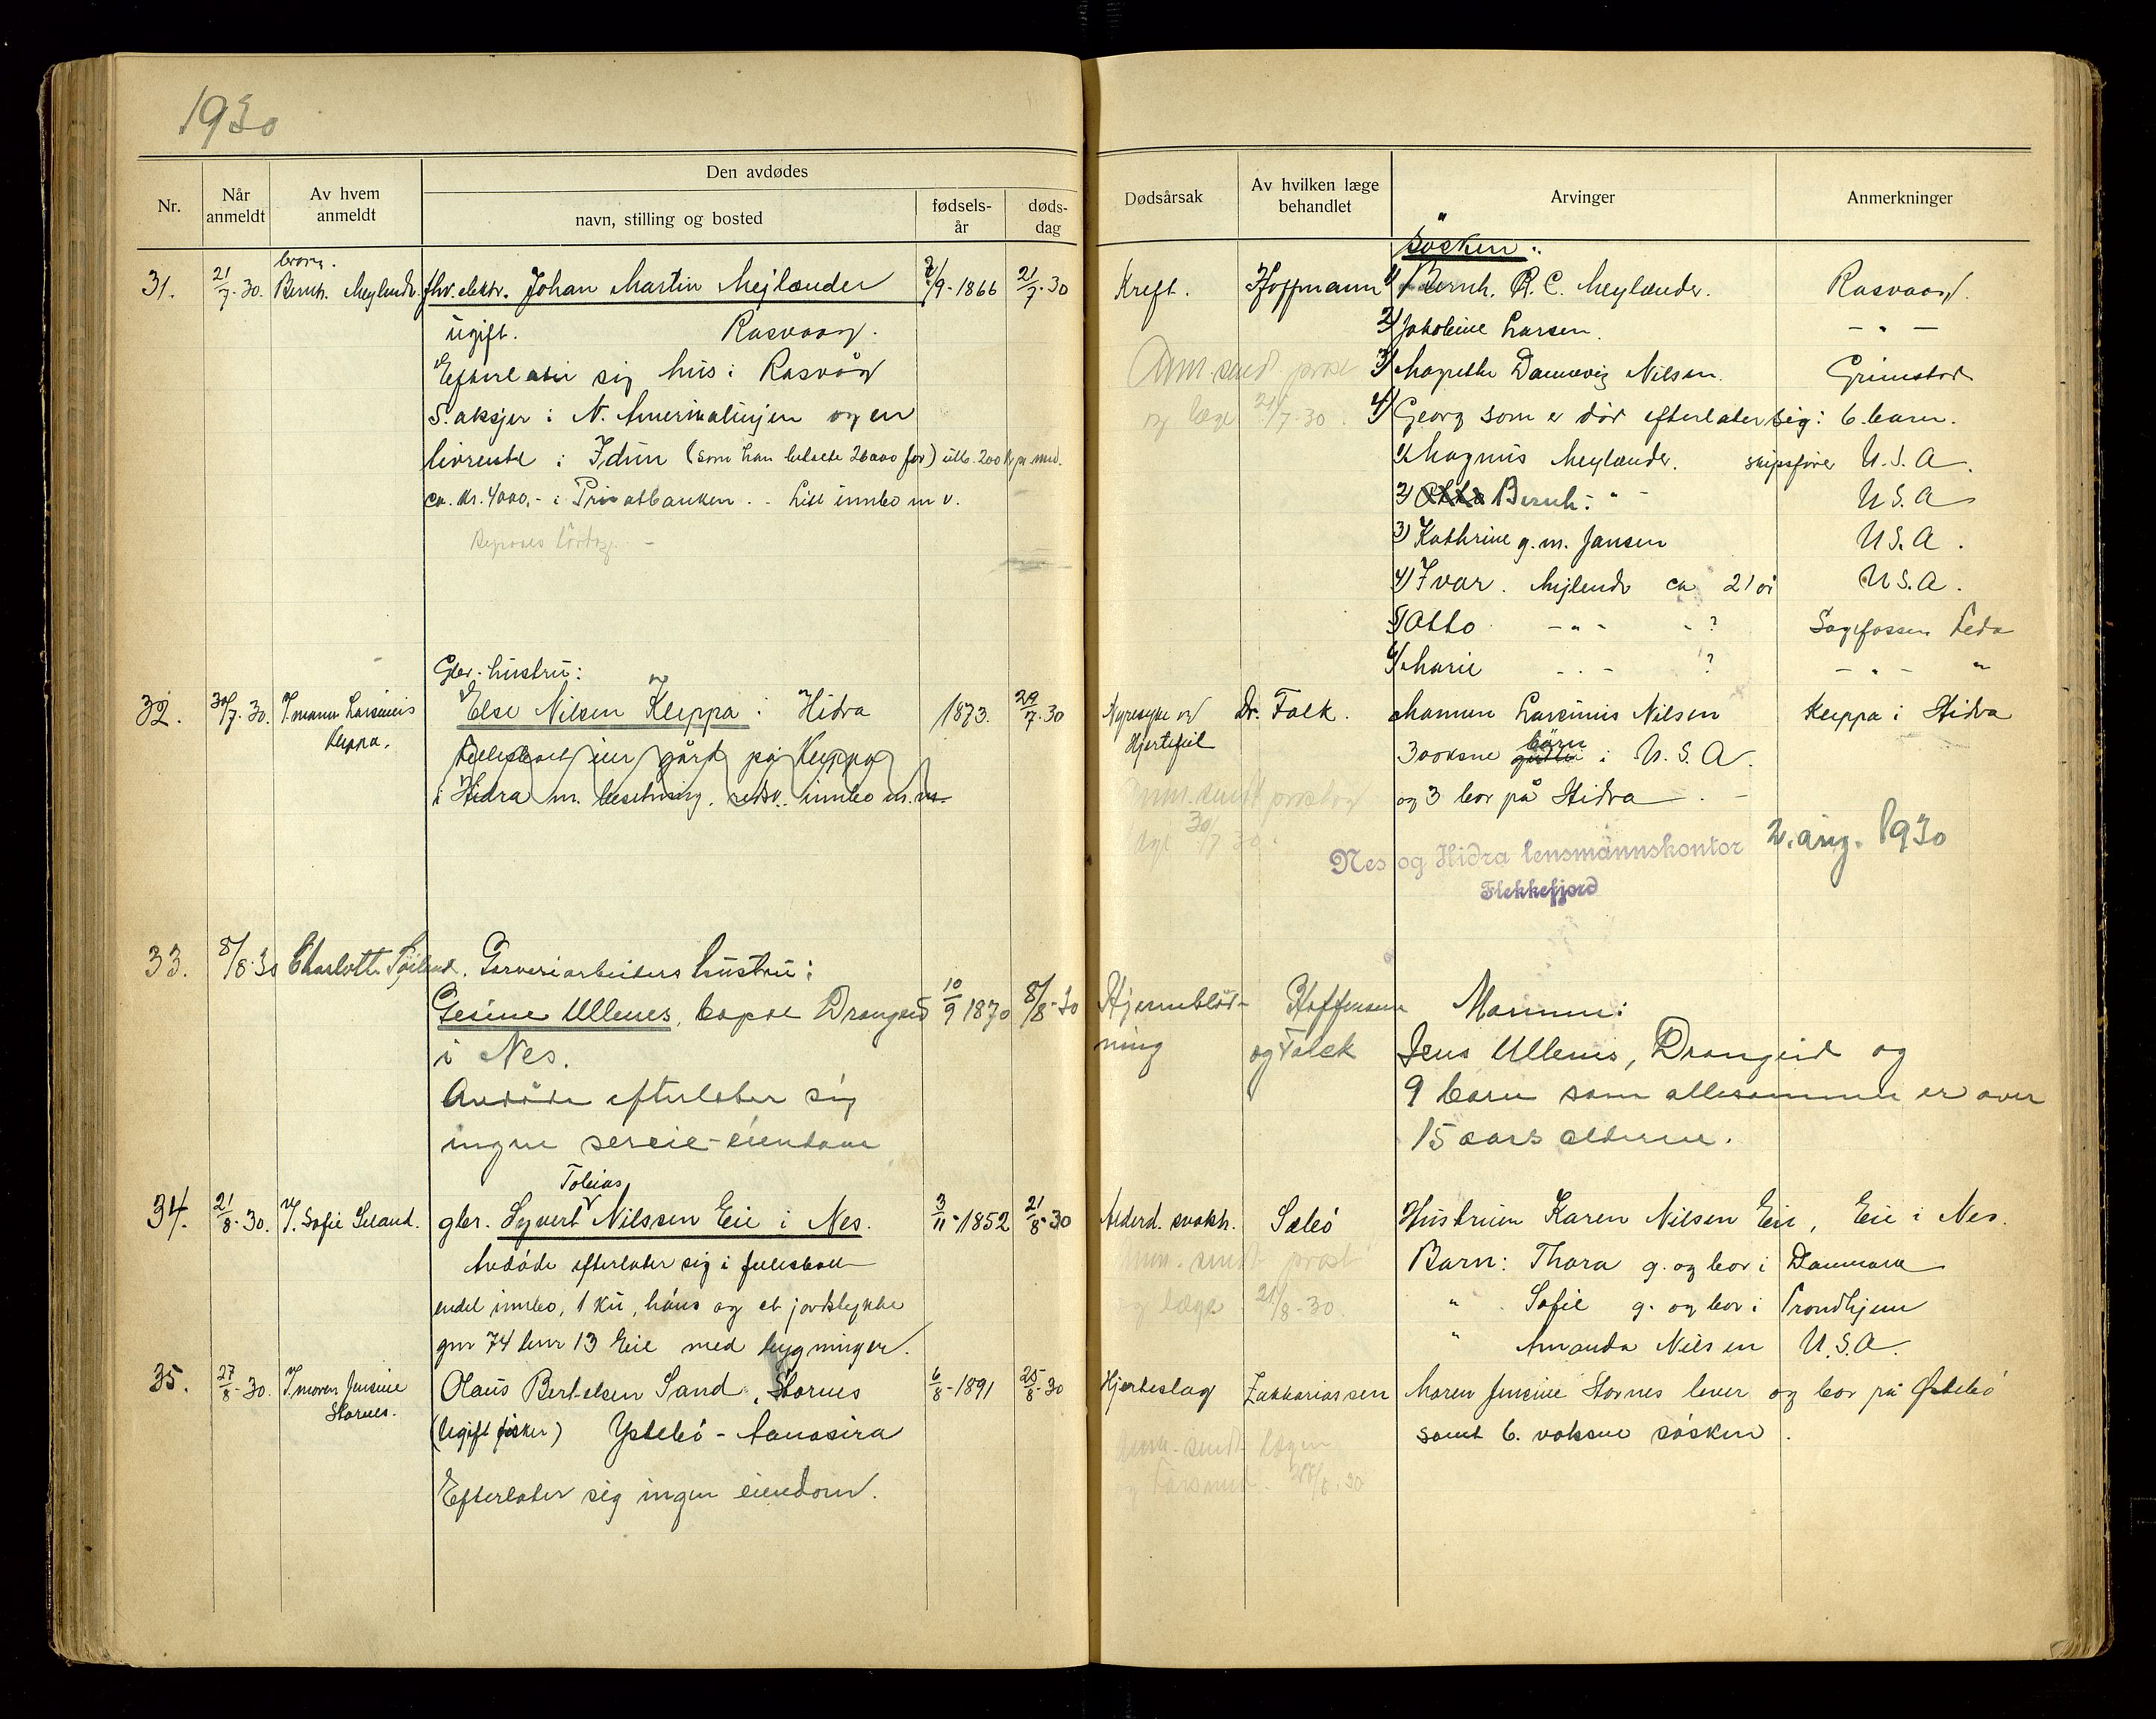 1930
Nr.
Når anmeldt
Av hvem anmeldt
Den avdødes
navn, stilling og bosted
fødsels-år
døds-dag
Dødsårsak
Av hvilken læge behandlet
Arvinger
Anmerkninger
31. 21/7-30. Bernh. fhv. elektr. Johan Martin Mejlænder /9-1866 21/7-30
ugift. Rasvaag.
Efterlater sig hus i Rasvåg
5 aksjer i N. Amerikalinjen og en
livrente i Idun (som han betalte 26000 for) utb. 200 kr pr. mnd.
ca. kr. 4000,- i Privatbanken. - Litt innbo m v.
Kreft. Hoffmann
Anm. sendt prost
og læge 21/7-30.
Søsken:
1) Bernh. R. C. Meylænder. Rasvaag.
2) Jakobine Larsen. - " -
3) Magrethe Dannevig Nilsen. Grimstad
4) Georg som er død efterlater sig: 6 barn.
1) Magnus Meylænder. skipsfører U.S.A.
2) Otto Bernh. - " - U.S.A
3) Kathrine g.m. Jansen U.S.A.
4) Ivar. ca 21 år U.S.A.
5) Otto - " - - ?
6) Marie - . - ?
32. 30/7-30. V. mann Larsinius Kleppa.
Gbr. hustru:
Else Nilsen Kleppa i Hidra 1873. 29/7-30
gård på Kleppa
i Hidra m. besetning, redsk. innbo m.m.
Nyresyke og Hjertefeil
Dr. Falk.
Mannen Larsinius Nilsen Kleppa i Hidra
3 voksne barn i U.S.A.
og 3 bor på Hidra.
Anm. sendt prost og
læge 30/7 30.
Nes og Hidra lensmannskontor 2. aug. 1930
Flekkefjord
33. 8/8-30 Charlotte Garveriarbeiders hustru:
Gesine Ullenes, Drangeid 10/9 1870 8/8-30
i Nes.
Avdøde efterlater sig
ingen sereie-eiendom
Hjerneblød-
ning
Hoffmann
og Falck
Mannen:
Jens Ullenes, Drangeid og
9 barn som allesammen er over
15 aars alderen.
34. 21/8-30. V. Sofie Seland. gbr. Syvert Tobias Nilssen Eie i Nes. 3/11-1852 21/8-30
Avdøde efterlater sig i fellesbo
endel innbo, 1 ku, høns og et jordstykke
gnr 74 bnr 13 Eie med bygninger.
Alderd. svakh. Sælø
Anm. sendt prost
og læge 21/8-30.
Hustruen Karen Nilsen Eie, Eie i Nes.
Barn: Thora g. og bor i Danmark
" Sofie g. og bor i Trondhjem
" Amanda Nilsen U.S.A.
35. 27/8-30. V. moren Jensine Stornes.
Olaus Bertelsen Sand, Stornes 6/8-1891 25/8-30
(Ugift fisker) Ystebø - Aanasira
Efterlater sig ingen eiendom.
Hjerteslag Zakkariassen
Anm. sendt lægen
Moren Jensine Stornes lever og bor på Østebø
samt 6 voksne søsken.